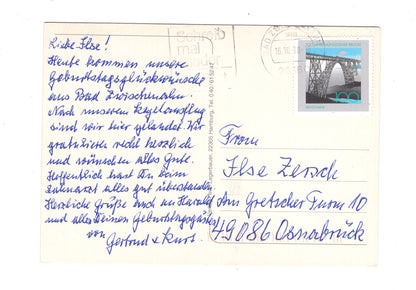 Liebe Ilse!
Heute kommen unsere
Geburtstagsglückwünsche
aus Bad Zwischenahn.
Nach unserem Kegelausflug
sind wir hier gelandet. Wir
gratulieren recht herzlich
und wünschen alles Gute.
Hoffentlich hast Du beim
Zahnarzt alles gut überstanden.
Herzliche Grüße auch an Harald
und alle Deinen Geburtstagsgäste
von
Gertrud & Kurt.
Schreib
mal
100
From
Ilse Zersch
Am Gretescher Turm 10
49086 Osnabrück